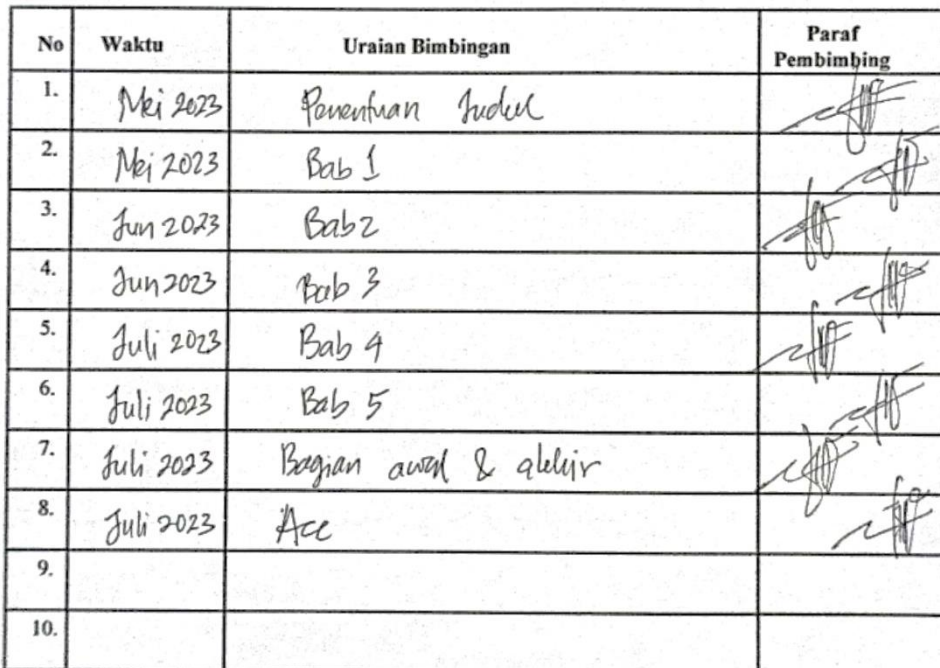 No Waktu Uraian Bimbingan Paraf
Pembimbing
1. Mei 2023 Penentuan Judul
2. Mei 2023 Bab 1
3. Jun 2023 Bab 2
4. Jun 2023 Bab 3
5. Juli 2023 Bab 4
6. Juli 2023 Bab 5
7. Juli 2023 Bagian awal & akhir
8. Juli 2023 Acc
9.
10.